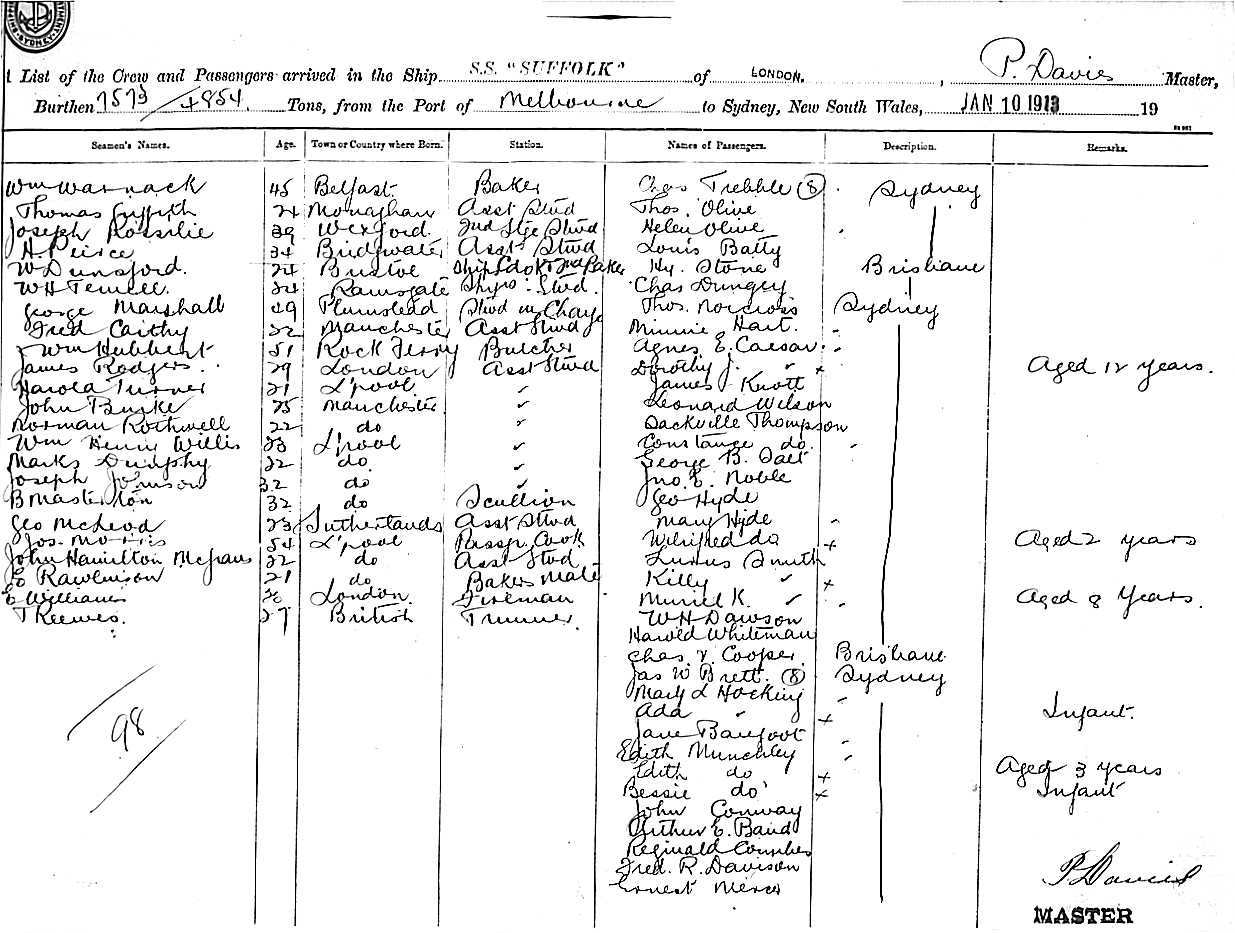 List of the Crew and Passengers arrived in the Ship S.S. "SUFFOLK" of LONDON. , P. Davies Master,
Burthen 7573/4854 Tons, from the Port of Melbourne to Sydney, New South Wales, JAN 10 1913 19
Seamen's Names. Age. Town or Country where Born. Station. Names of Passengers. Description. Remarks.
Wm Warnack 45 Belfast Baker Chas Trebble (8) Sydney
Thomas Griffith 24 Monaghan Asst Stwd Thos. Olive
Joseph Rossilie 39 Wexford. 2nd Stge Stwd Helen Olive
H. Peirce 34 Bridgwater Asst Stwd Louis Batty
W Dunsford. 24 Bristol Ships Cook & 2nd Baker Hy. Stone Brisbane
WH Tewell. 24 Ramsgate Stwd. Chas Dungey
George Marshall 49 Plumstead Stwd in Charge Thos. Norcross Sydney
Fred Caithy 22 Manchester Asst Stwd Minnie Hart.
Wm Hubbert 51 Rock Ferry Butcher Agnes E. Caesar
James Rodgers. 29 London Asst Stwd Dorothy J. " x Aged 12 years.
Harold Turner 21 L'pool " James Knott
John Burke 25 Manchester " Leonard Wilson
Norman Rothwell 22 do " Sackville Thompson
Wm Henry Willis 23 L'pool " Constance do.
Marks Dunphy 22 do. " George B. Salt
Joseph Johnson 32 do " Jno. E. Noble
B Masterton 32 do Scullion Geo Hyde
Geo McLeod 23 Sutherlands Asst Stwd Mary Hyde
Jos. Morris 54 L'pool Passgr. Cook Wilfred do x Aged 2 years
John Hamilton 22 do Asst Stwd Smith
E Rawlinson 21 do Bakers Mate Killy " x
E Williams London Fireman Muriel K. " Aged 8 Years.
T Reeves. 27 British Trimmer WH Dawson
Harold Whiteman
Chas. V. Cooper Brisbane
Jas W Brett. (8) Sydney
Mary L Hocking
Ada " x Infant.
Jane Barefoot
Edith Munchley
Edith do x Aged 3 years
Bessie do x Infant
John Conway
Arthur E. Baird
Reginald Coombes
Fred. R. Davison
Ernest Mercer
98
P Davies
MASTER